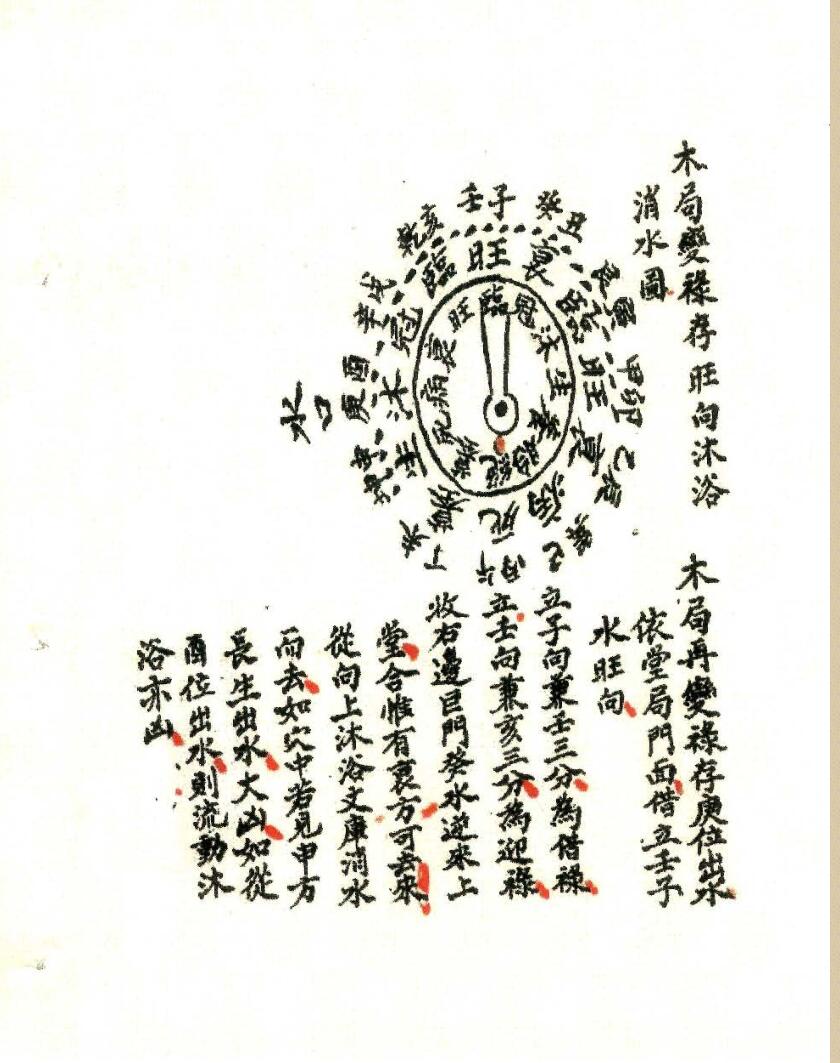 木局變祿存旺向沐浴
消水圖
壬子
癸丑
艮寅
甲卯
乙辰
巽巳
丙午
丁未
坤申
庚酉
辛戌
乾亥
旺
衰
旺
衰
病
死
沐
冠
臨
臨
冠
沐
生
養
胎
絕
墓
死
病
衰
旺
水口
木局再變祿存庚位出水
依堂局門面借立壬子
水旺向
立子向兼壬三分為借祿
立壬向兼亥三分為迎祿
收右邊巨門癸水逆來上
堂合惟有衰方可去來
從向上沐浴文庫消水
而去如穴中若見申方
長生出水大凶如從
酉位出水則流動沐
浴亦凶